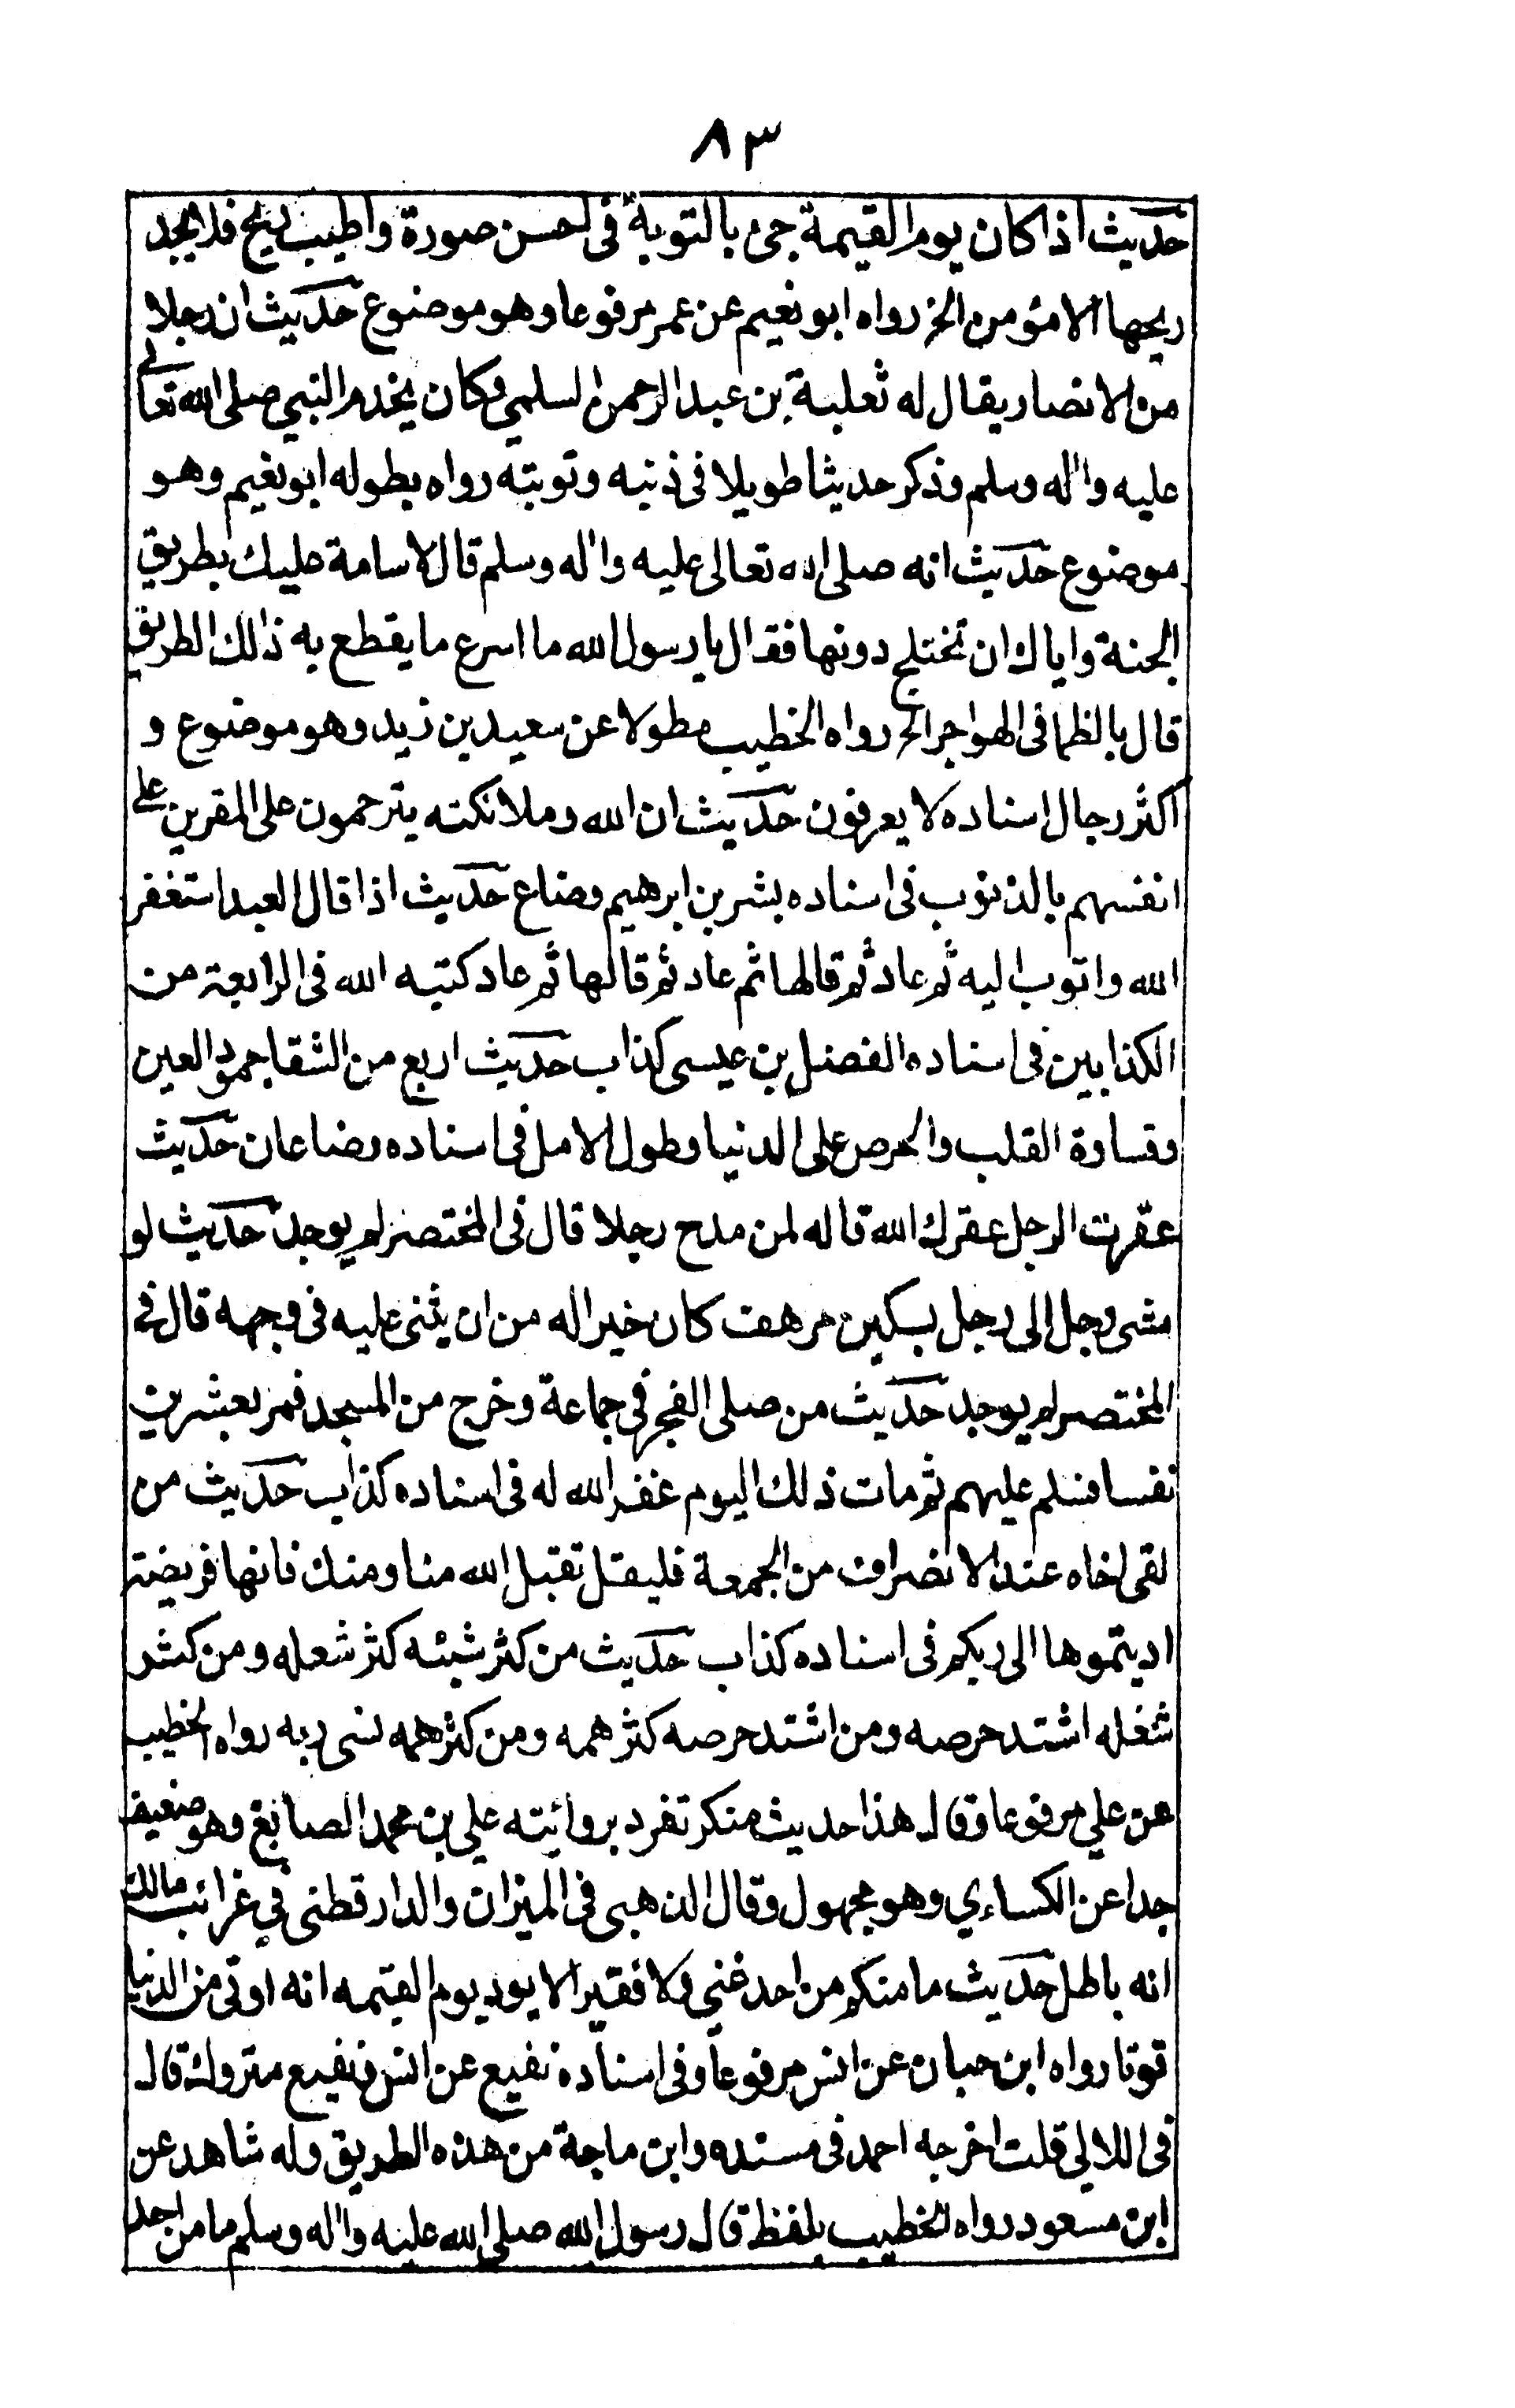 ٨٣
حديث اذا كان يوم القيمة جئ بالتوبة فى احسن صورة واطيب ريح فلا يجد
ريحها الا مؤمن الخ رواه ابو نعيم عن عمر مرفوعا وهو موضوع حديث ان رجلا
من الانصار يقال له ثعلبة بن عبد الرحمن السلمي وكان يخدم النبي صلى الله تعالى
عليه واله وسلم وذكر حديثا طويلا فى ذنبه وتوبته رواه بطوله ابو نعيم وهو
موضوع حديث انه صلى الله تعالى عليه واله وسلم قال لاسامة عليك بطريق
الجنة واياك ان تختلج دونها فقال يا رسول الله ما اسرع ما يقطع به ذلك الطريق
قال بالظما فى الهواجر الخ رواه الخطيب مطولا عن سعيد بن زيد وهو موضوع و
اكثر رجال اسناده لا يعرفون حديث ان الله وملائكته يترحمون على المقرين على
انفسهم بالذنوب فى اسناده بشر بن ابرهيم وضاع حديث اذا قال العبد استغفر
الله واتوب اليه ثم عاد ثم قالها ثم عاد ثم قالها ثم عاد كتبه الله فى الرابعة من
الكذابين فى اسناده الفضل بن عيسى كذاب حديث اربع من الشقا جمود العين
وقساوة القلب والحرص على الدنيا وطول الامل فى اسناده وضاعان حديث
عقرت الرجل عقرك الله قاله لمن مدح رجلا قال فى المختصر لم يوجد حديث لو
مشى رجل الى رجل بسكين مرهف كان خيرا له من ان يثنى عليه فى وجهه قال فى
المختصر لم يوجد حديث من صلى الفجر فى جماعة وخرج من المسجد فمر بعشرين
نفسا فسلم عليهم ثم مات ذلك اليوم غفر الله له فى اسناده كذاب حديث من
لقى اخاه عند الانصراف من الجمعة فليقل تقبل الله منا ومنك فانها فريضة
اديتموها الى ربكم فى اسناده كذاب حديث من كثر شبئه كثر شعله ومن كثر
شغله اشتد حرصه ومن اشتد حرصه كثر همه ومن كثر همه نسى ربه رواه الخطيب
عن علي مرفوعا وقال هذا حديث منكر تفرد بروائيته علي بن محمد الصايغ وهو ضعيف
جدا عن الكساءي وهو مجهول وقال الذهبى فى الميزان والدارقطنى في غرائب مالك
انه باطل حديث ما منكم من احد غني ولا فقير الا يود يوم القيمه انه اوتى من الدنيا
قوتا رواه ابن حبان عن انس مرفوعا وفى اسناده نفيع عن انس ونفيع متروك قال
فى اللالي قلت اخرجه احمد فى مسنده وابن ماجة من هذه الطريق وله شاهد عن
ابن مسعود رواه الخطيب بلفظ قال رسول الله صلى الله عليه واله وسلم ما من احد